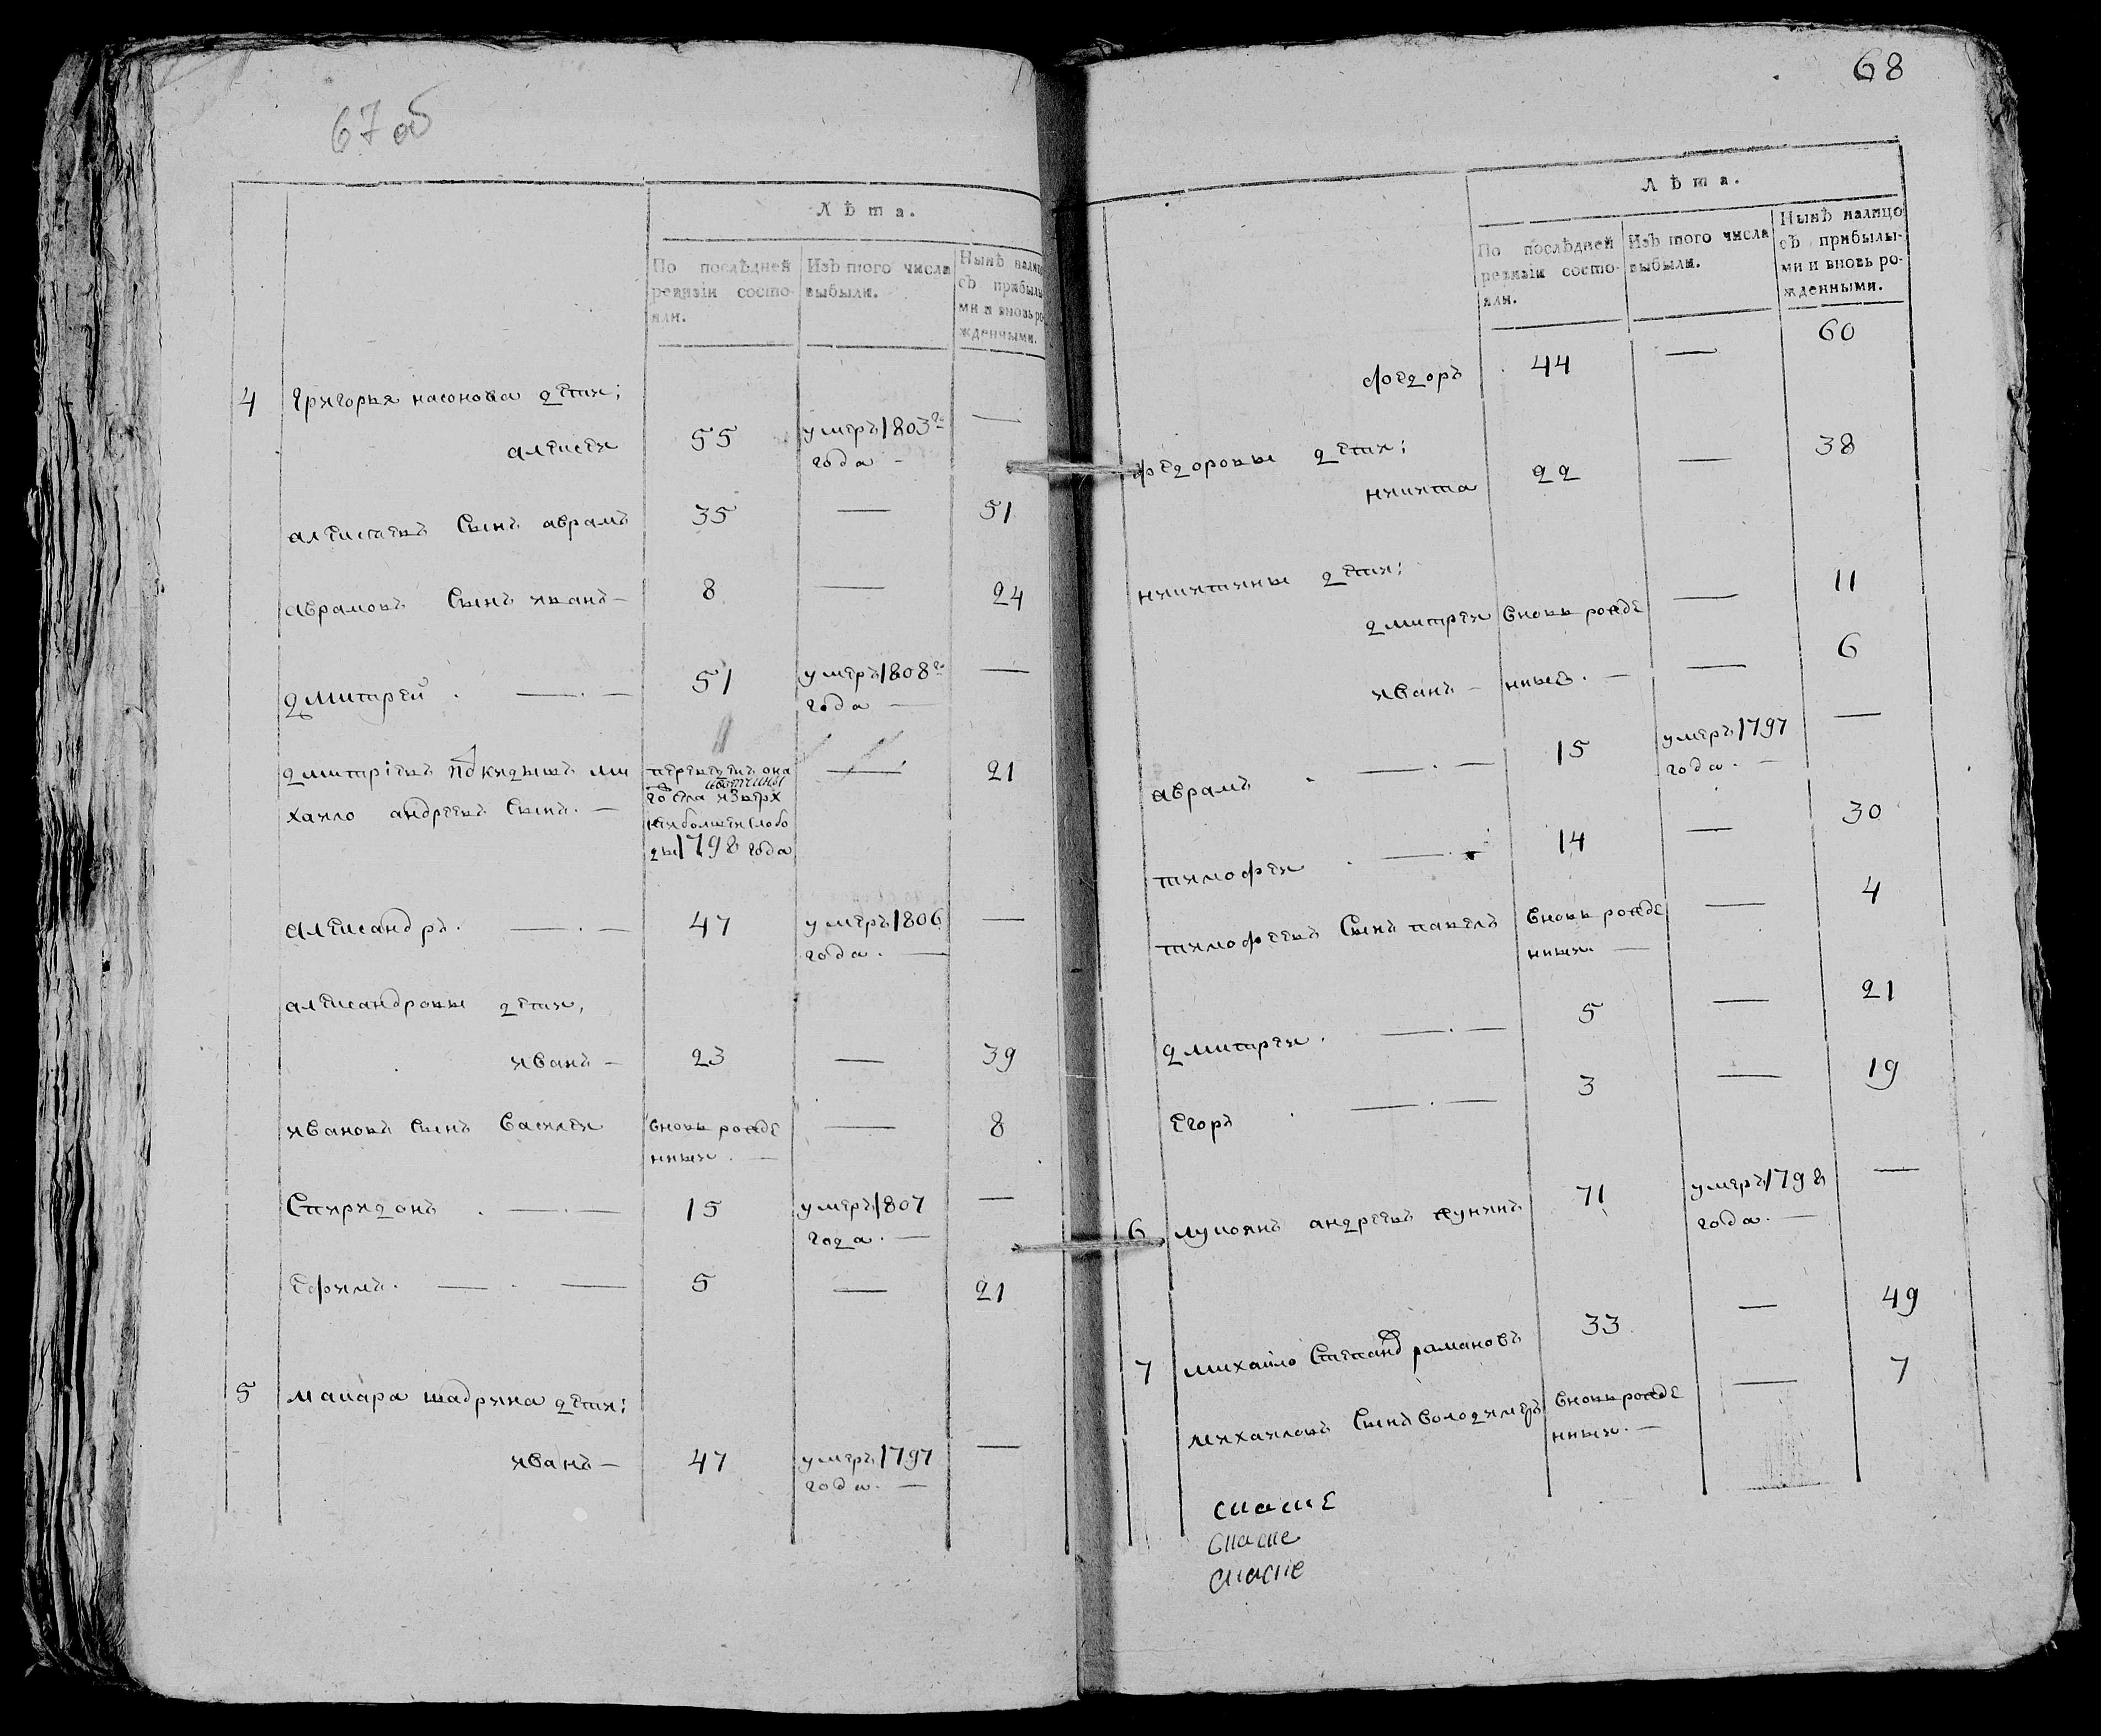 67 об
Лѣта.
По послѣдней ревизіи состояли.
Изъ того числа выбыли.
Нынѣ налицо съ прибылыми и вновь рожденными.
4 григорья насонова дети;
алексеи 55 умеръ 1803 го года —
алексеевъ сынъ аврамъ 35 — 51
аврамовъ сынъ иванъ — 8 — 24
дмитрей . — . — 51 умеръ 1808 го года —
дмитріевъ подкидышъ ми
хаило андреевъ сынъ. — 21
1798 года
александръ. — . — 47 умеръ 1806 года. —
александровы дети,
иванъ — 23 — 39
ивановъ сынъ василеи вновь рожде — 8
нныи . —
спиридонъ . — . — 15 умеръ 1807 года. —
ефимъ. — . — 5 — 21
5 макара шадрина дети;
иванъ — 47 умеръ 1797 года. —
68
Лѣта.
По послѣдней ревизіи состояли.
Изъ того числа выбыли.
Нынѣ налицо съ прибылыми и вновь рожденными.
федоръ 44 — 60
федоровы дети;
никита 22 — 38
никитины дети;
дмитреи вновь рожде — 11
иванъ — нныя. — — 6
аврамъ . — . — 15 умеръ 1797 года. —
тимофеи . — . — 14 — 30
тимофеевъ сынъ павелъ вновь рожде — 4
нныи. —
дмитреи . — . — 5 — 21
егоръ . — . — 3 — 19
6 лукоянъ андреевъ кунинъ 71 умеръ 1798 года. —
7 михайло степанов рамановъ 33 — 49
михаиловъ сынъ володимеръ вновь рожде — 7
нныи. —
спаспе
спаспе
спаспе